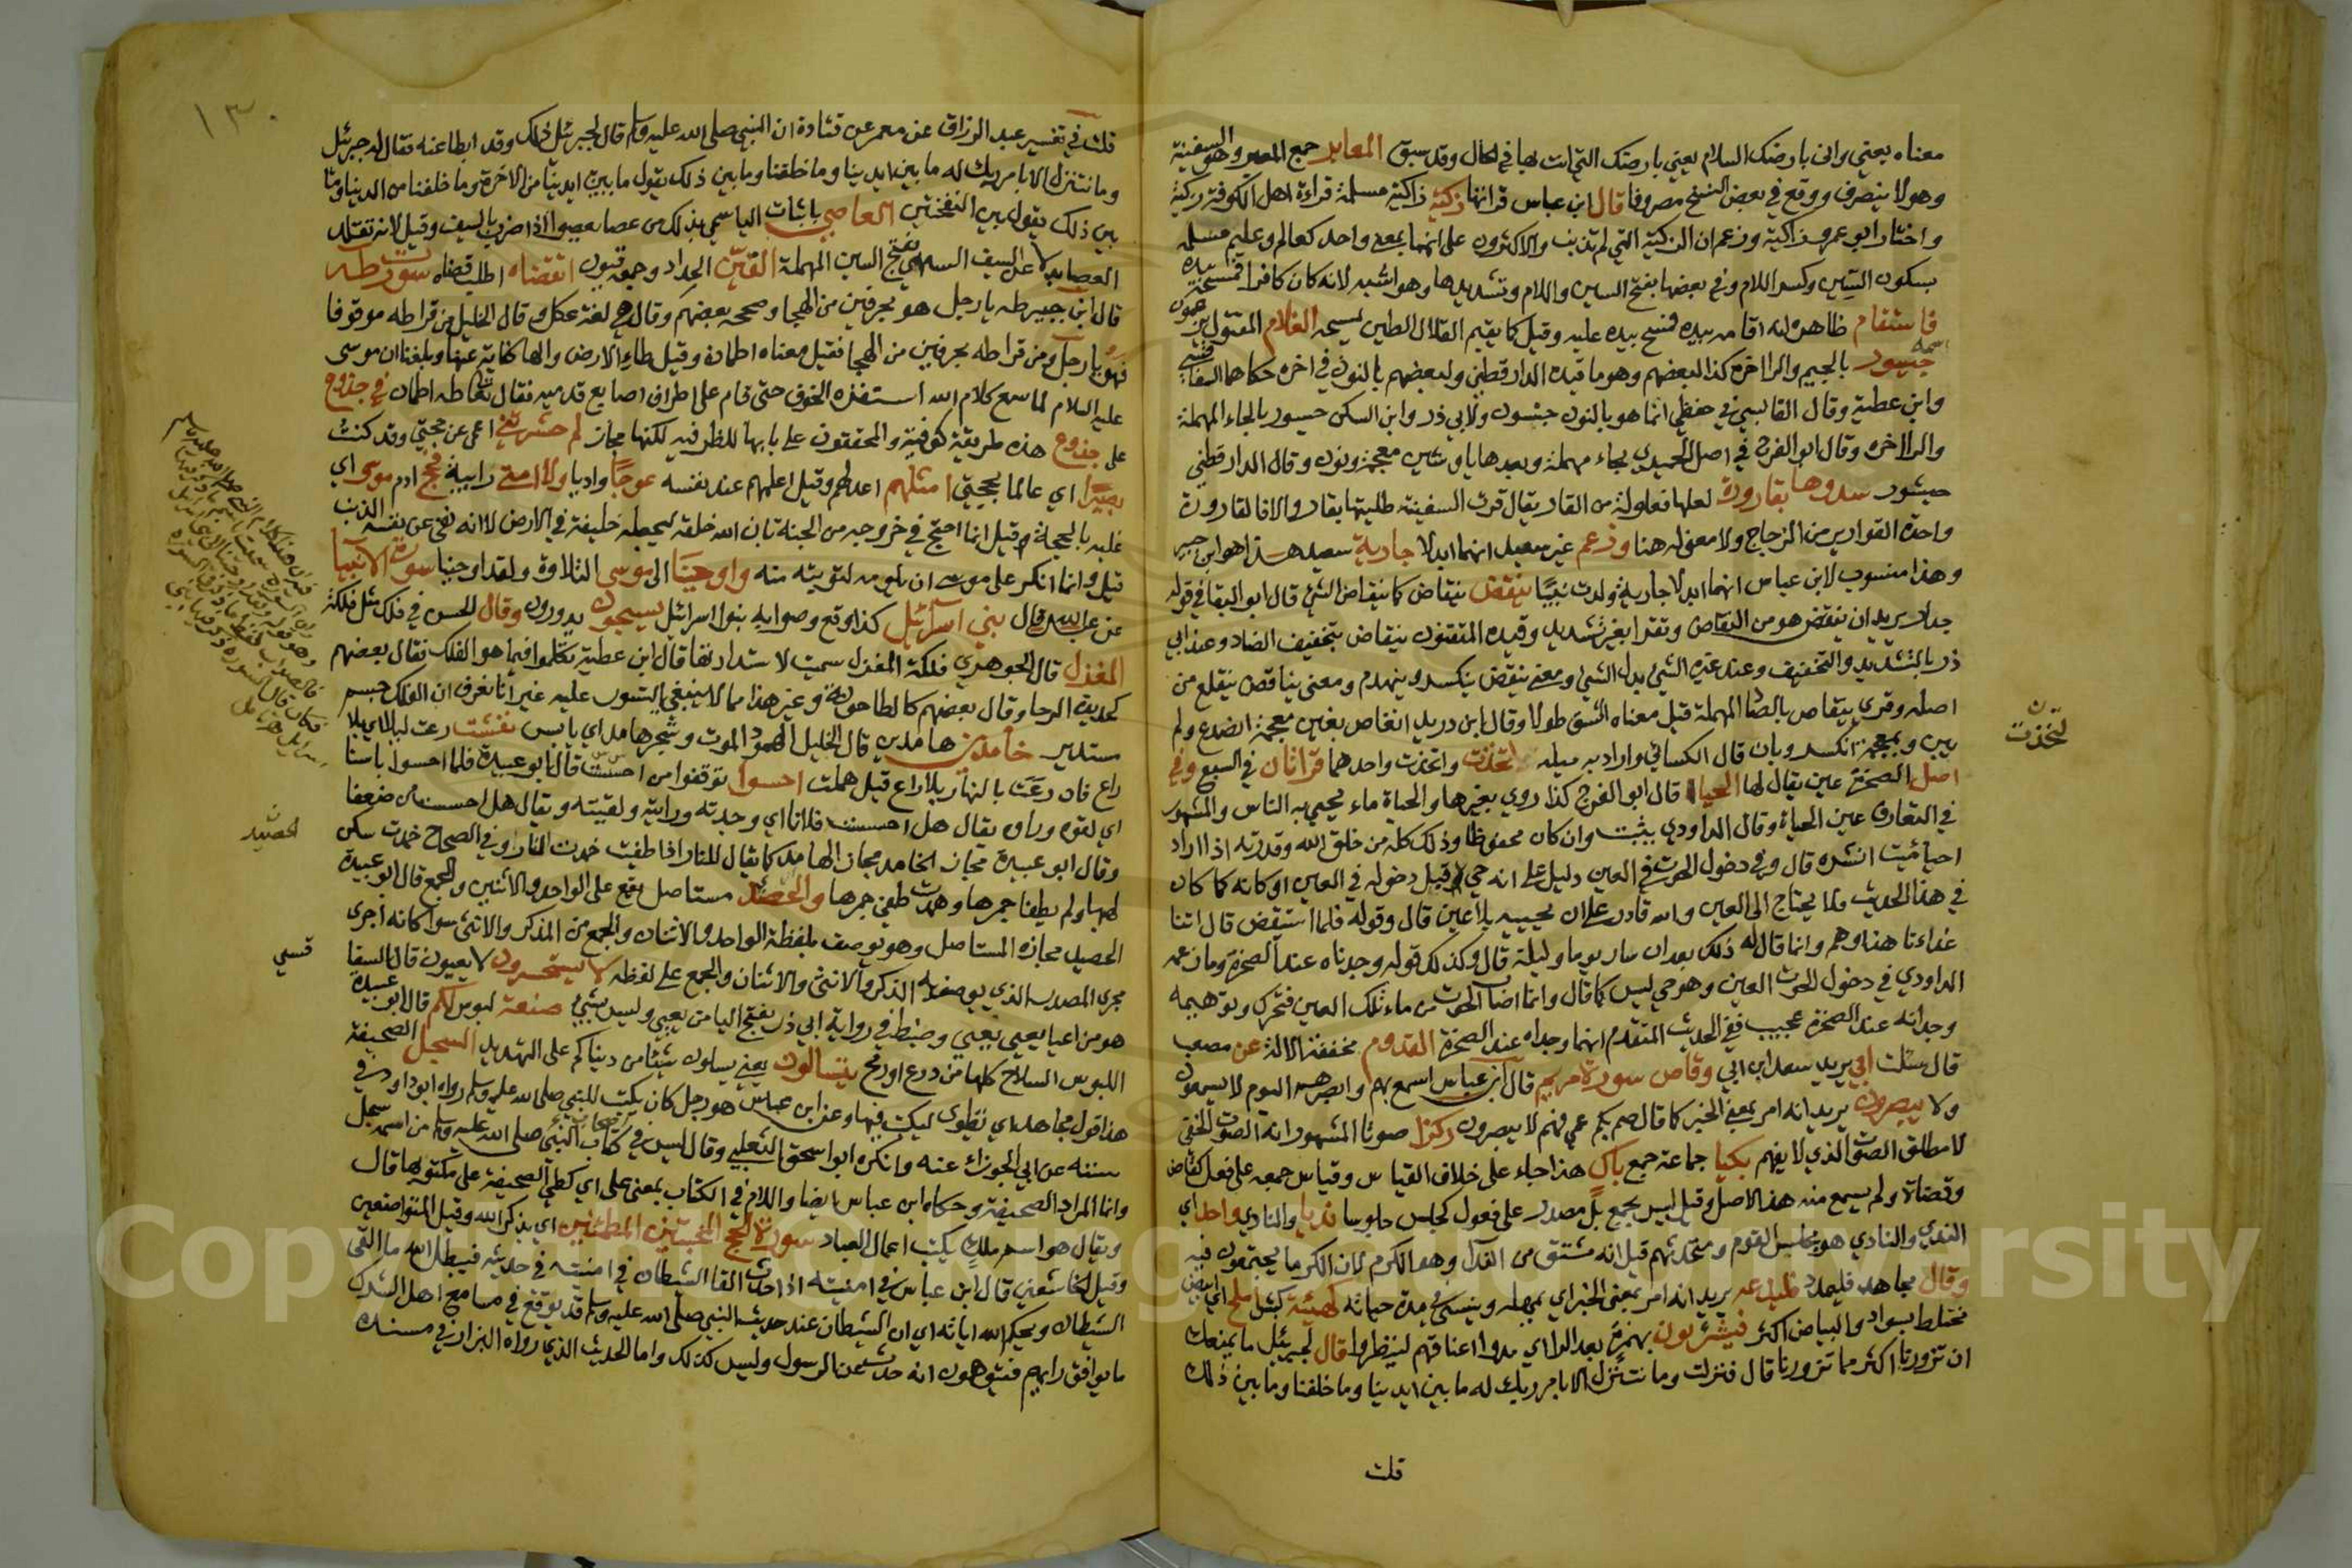 معناه يعني واني بارضك السلام يعني بارضك التي انت بها في الحال وقد سبق المعابر جمع المعبر وهو السفينة
وهو لا ينصرف ووقع في بعض النسخ مصروفا قال ابن عباس قراتها زكية زاكية مسلمة قراءة اهل الكوفة زكية
واختار ابو عمرو زاكية وزعم ان الزكية التي لم تذنب والاكثرون على انهما بمعنى واحد كعالم وعليم مسلمة
بسكون السين وكسر اللام وفي بعضها بفتح السين واللام وتشديدها وهو اشبه لانه كان كافرا فمسحه بيده
فاستقام ظاهره انه اقامه بيده فمسح بيده عليه وقيل كما يقيم القلال الطين لمسحه الغلام المقتول
اسمه جيسور بالجيم والرا اخره كذا لبعضهم وهو ما قيده الدارقطني ولبعضهم بالنون في اخره حكاهما السفاقسي
وابن عطية وقال القابسي في حفظي انما هو بالنون جيسون ولابي ذر وابن السكن حيسور بالحاء المهملة
والرا اخره وقال ابو الفرج في اصل الحميدي بحاء مهملة وبعدها يا وشين معجمة ونون وقال الدارقطني
حيشور سدوها بقارورة لعلها فعاولة من القار يقال قرت السفينة طليتها بقار والا فالقارورة
واحدة القوارير من الزجاج ولا معنى له هنا وزعم غير سعيد انهما ابدلا جارية سعيد هذا هو ابن جبير
وهذا منسوب لابن عباس انهما ابدلا جارية ولدت نبيا ينقض ينقاض كما ينقاض الشي قال ابو البقا في قوله
جدارا يريد ان ينقض هو من النقاض وتقرا بغير تشديد وقيده المتقنون ينقاض بتخفيف الضاد وعند ابي
ذر بالتشديد والتخفيف وعند غيره الشي بدل الشي ومعنى ينقض ينكسر وينهدم ومعنى ينقاض ينقلع من
اصله وقري ينقاص بالصاد المهملة قيل معناه انشق طولا وقال ابن دريد انقاص بغير معجمة انصدع ولم
يبن وبمعجمة انكسر وبان قال الكسائي واراد به ميله لتخذت واتخذت واحد هما قراتان في السبع وفي
لتخذت
اصل الصخرة عين يقال لها الحيا قال ابو الفرج كذا روي بغيرها والحياة ماء يحيي به الناس والمشهور
في التعارف عين الحياة وقال الداودي يثبت وان كان محفوظا وذلك كله من خلق الله وقدرته اذا اراد
احيا ميت انشره قال وفي دخول الحوت في العين دليل على انه حي قبل دخوله في العين او كانه كما كان
في هذا الحديث ولما يحتاج الى العين والله قادر على ان يحييه بلا عين قال وقوله فلما استيقض قال اتنا
غداءنا هذا وهم وانما قال له ذلك بعد ان سار يوما وليلة قال وكذلك قوله وجدناه عند الصخرة وما زعمه
الداودي في دخول الحوت العين وهو حي ليس كما قال وانما اصاب الحوت من ماء تلك العين فتحرك وتوهيمه
وجدانه عند الصخرة عجيب ففي الحديث المتقدم انهما وجداه عند الصخرة القدوم مخففة الالة عن مصعب
قال سالت ابي يريد سعد ابن ابي وقاص سورة مريم قال ابن عباس اسمع بهم وابصر هم اليوم لا يسمعون
ولا يبصرون يريد انه امر بمعنى الخبر كما قال صم بكم عمي فهم لا يبصرون ركزا صوتا المشهور انه الصوت الخفي
لا مطلق الصوت الذي لا يفهم بكيا جماعة جمع باك هذا جاء على خلاف القياس وقياس جمعه على فعل كقاض
وقضاة ولم يسمع منه هذا الاصل وقيل ليس بجمع بل مصدر على فعول كجلس جلوسا نديا والنادي واحد اي
الندي والنادي هو مجلس القوم ومتحدثهم قيل انه مشتق من الندا وهو الكرم لان الكرما يجتمعون فيه
وقال مجاهد فليمدد فليدعه يريد انه امر بمعنى الخبر اي يمهله وينسى في مدة حياته كهيئة كبش املح اي ابيض
مختلط بسواد والبياض اكثر فيشرئبون بهمزة بعد الراء اي مدوا اعناقهم لينظروا قال لجبرئيل ما يمنعك
ان تزورنا اكثر مما تزورنا قال فنزلت وما نتنزل الا بامر ربك له ما بين ايدينا وما خلفنا وما بين ذلك
قلت
١٣٠
قلت في تفسير عبد الرزاق عن معمر عن قتادة ان النبي صلى الله عليه وسلم قال لجبرئيل ذلك وقد ابطا عنه فقال له جبرئيل
وما نتنزل الا بامر ربك له ما بين ايدينا وما خلفنا وما بين ذلك يقول ما بين ايدينا من الاخرة وما خلفنا من الدنيا وما
بين ذلك يقول بين النفختين العاصي باثبات الياء سمي بذلك من عصا يعصوا اذا ضرب بالسيف وقيل لانه تقلد
العصا بدلا عن السيف السهمي بفتح السين المهملة القين الحداد وجمعه قيون اتقضاه اطلب قضاه سورة طه
قال ابن جبير طه يا رجل هو بحرفين من الهجا وصححه بعضهم وقال هي لغة عكل وقال الخليل من قرا طه موقوفا
فهو يا رجل ومن قرا طه بحرفين من الهجا فقيل معناه اطمان وقيل طاء الارض والها كناية عنها وبلغنا ان موسى
عليه السلام لما سمع كلام الله استفزه الخوف حتى قام على اطراف اصابع قدميه فقال تعالى طه اطمان في جذوع
على جذوع هذه طريقة كوفية والمحققون على بابها للظرفية لكنها مجاز لم حشرتني اعمى عن حجتي وقد كنت
بصيرا اي عالما بحجتي امثلهم اعدلهم وقيل اعلمهم عند نفسه عوجا واديا ولا امتا رابية فحج ادم موسى اي
غلبه بالحجة وقيل انما احتج في خروجه من الجنة بان الله خلقه ليجعله خليفة في الارض لا انه نفى عن نفسه الذنب
قيل وانما انكر على موسى ان يلومه لتوبته منه واوحينا الى موسى التلاوة ولقد اوحينا سورة الانبيا
عن عبد الله قال بني اسرائيل كذا وقع وصوابه بنوا اسرائيل يسبحون يدورون وقال الحسن في فلك مثل فلكة
المغزل قال الجوهري فلكة المغزل سميت لاستدارتها قال ابن عطية تكلموا فيما هو الفلك فقال بعضهم
كحديدة الرحا وقال بعضهم كالطاحونة وغير هذا مما لا ينبغي التسور عليه غير انا نعرف ان الفلك جسم
مستدير خامدين هامدين قال الخليل الهمود الموت وشجر هامد اي يابس نفشت رعت ليلا اي بلا
راع فان رعت بالنهار بلا راع قيل هملت احسوا توقعوا من احسست قال ابو عبيدة فلما احسوا باسنا
اي لقوه وراوه يقال هل احسست فلانا اي وجدته ورايته ولقيته ويقال هل احسست من ضعفا
وقال ابو عبيدة مجاز الخامد مجاز الهامد كما يقال للنار اذا طفيت خمدت النار وفي الصحاح خمدت سكن
لهبها ولم يطفا جمرها وهمدت طفي جمرها والحصيد مستاصل يقع على الواحد والاثنين والجمع قال ابو عبيدة
الحصيد
الحصيد مجازه المستاصل وهو يوصف بلفظة الواحد والاثنان والجمع من المذكر والانثى سوا كانه اجرى
مجرى المصدر الذي يوصف به الذكر والانثى والاثنان والجمع على لفظه لا يستحسرون لا يعيون قال السفا
قسي
هو من اعيا يعيي يعيي وضبط في رواية ابي ذر بفتح اليا من يعيي وليس بشي صنعة لبوس لكم قال ابو عبيدة
اللبوس السلاح كلها من درع او رمح يتسالون يعني يسالون شيئا من دنياكم على التهديد السجل الصحيفة
هذا قول مجاهد اي نطوي ليكتب فيها وعن ابن عباس هو رجل كان يكتب للنبي صلى الله عليه وسلم رواه ابو داود في
سننه عن ابي الجوزاء عنه وانكره ابو اسحق الثعلبي وقال ليس في كتاب النبي صلى الله عليه وسلم من اسمه سجل
وانما المراد الصحيفة وحكاه ابن عباس ايضا واللام في الكتاب بمعنى على اي كطي الصحيفة على مكتوبها قال
ويقال هو اسم ملك يكتب اعمال العباد سورة الحج المخبتين المطمئنين اي بذكر الله وقيل المتواضعين
وقيل الخاشعين قال ابن عباس في امنيته اذا حدث القا الشيطان في امنيته في حديثه فيبطل الله ما القى
الشيطان ويحكم الله اياته اي ان الشيطان عند حديث النبي صلى الله عليه وسلم قد يوقع في مسامع اهل الشرك
ما يوافق رايهم فيتوهمون انه حدث عن الرسول وليس كذلك واما الحديث الذي رواه البزار في مسنده
Copyright © King Saud University